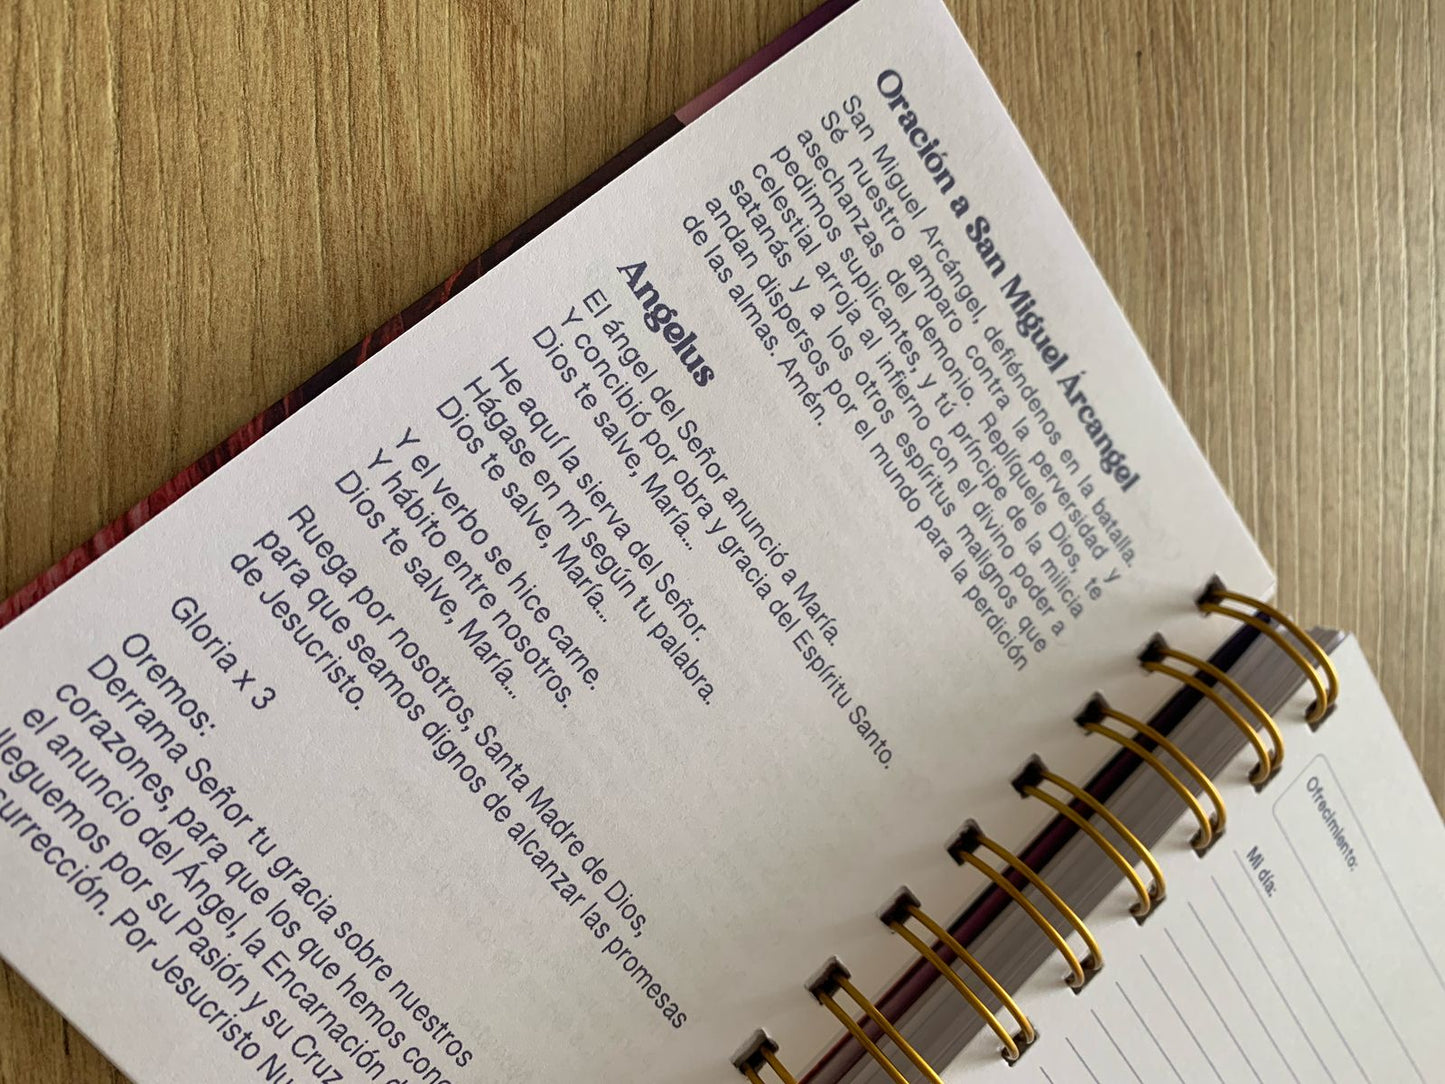 Oración a San Miguel Árcangel
San Miguel Arcángel, defiéndenos en la batalla.
Sé nuestro amparo contra la perversidad y
asechanzas del demonio. Replíquele Dios, te
pedimos suplicantes, y tú príncipe de la milicia
celestial arroja al infierno con el divino poder a
satanás y a los otros espíritus malignos que
andan dispersos por el mundo para la perdición
de las almas. Amén.
Angelus
El ángel del Señor anunció a María.
Y concibió por obra y gracia del Espíritu Santo.
Dios te salve, María...
He aquí la sierva del Señor.
Hágase en mí según tu palabra.
Dios te salve, María...
Y el verbo se hice carne.
Y hábito entre nosotros.
Dios te salve, María...
Ruega por nosotros, Santa Madre de Dios,
para que seamos dignos de alcanzar las promesas
de Jesucristo.
Gloria x 3
Oremos:
Derrama Señor tu gracia sobre nuestros
corazones, para que los que hemos
el anuncio del Ángel, la Encarnación
lleguemos por su Pasión y su Cruz
Por Jesucristo
Ofrecimiento:
Mi día: